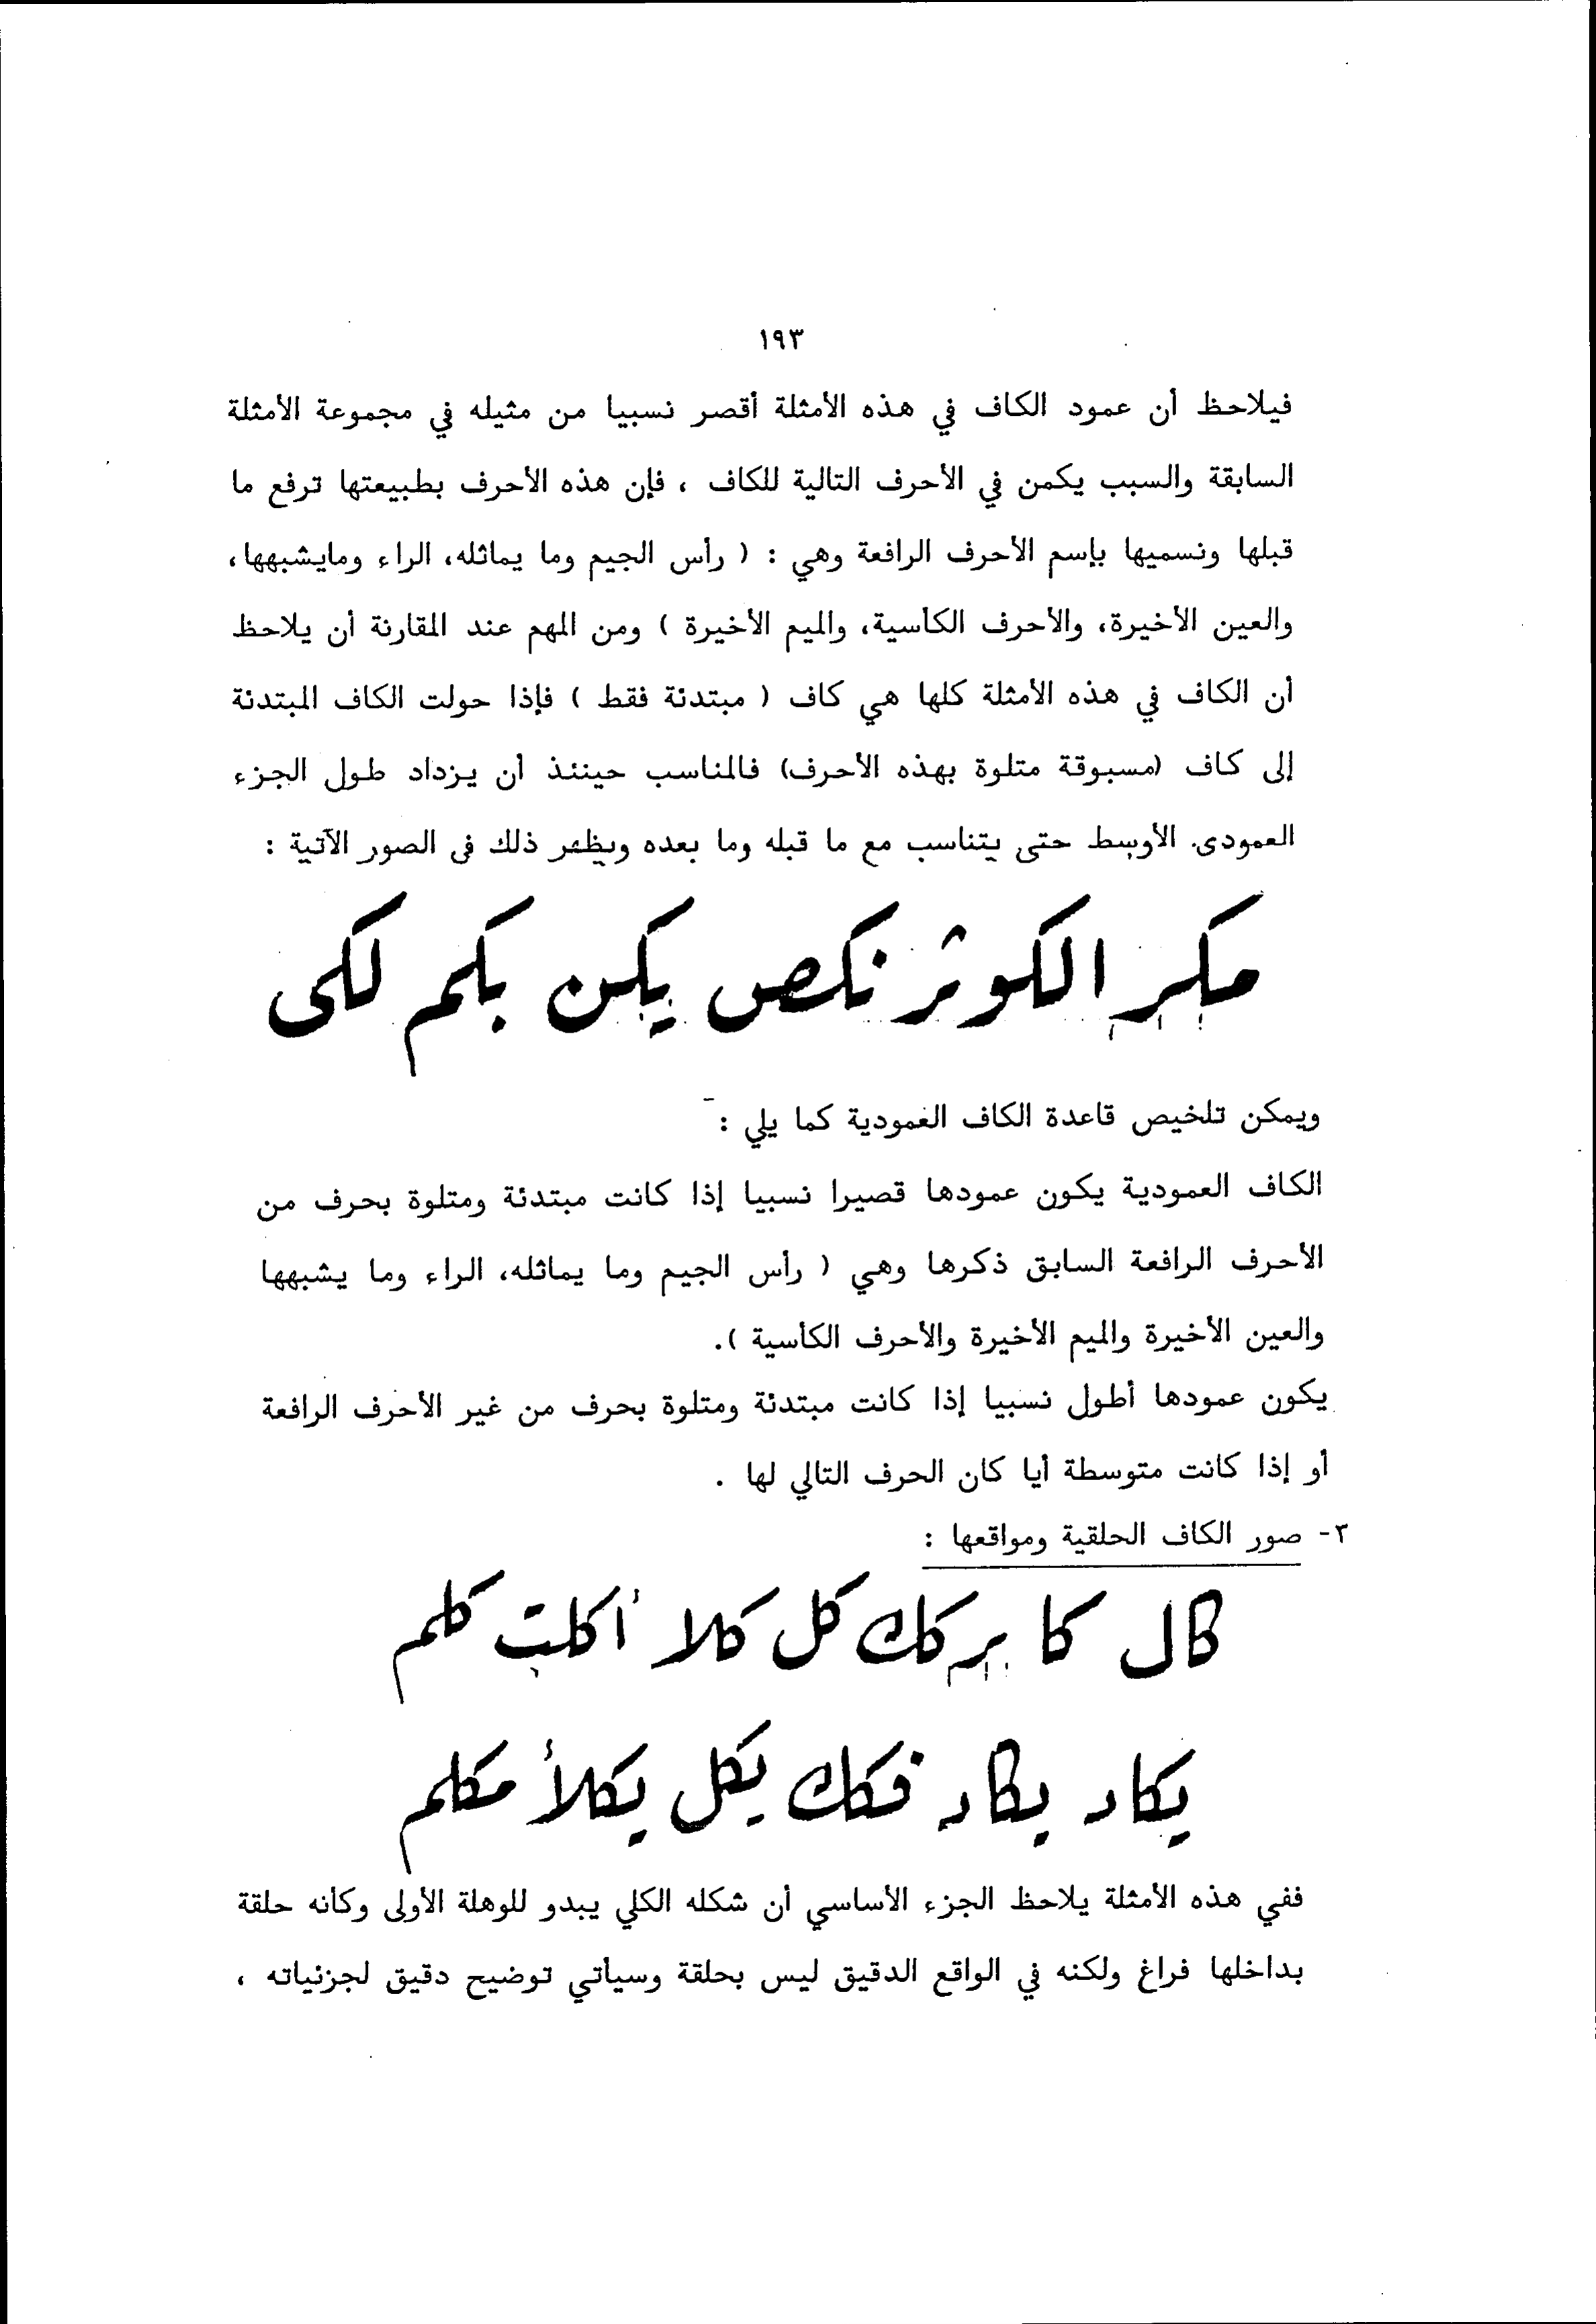 ١٩٣
فيلاحظ أن عمود الكاف في هذه الأمثلة أقصر نسبيا من مثيله في مجموعة الأمثلة
السابقة والسبب يكمن في الأحرف التالية للكاف ، فإن هذه الأحرف بطبيعتها ترفع ما
قبلها ونسميها بإسم الأحرف الرافعة وهي : ( رأس الجيم وما يماثله، الراء ومايشبهها،
والعين الأخيرة، والأحرف الكأسية، والميم الأخيرة ) ومن المهم عند المقارنة أن يلاحظ
أن الكاف في هذه الأمثلة كلها هي كاف ( مبتدئة فقط ) فإذا حولت الكاف المبتدئة
إلى كاف (مسبوقة متلوة بهذه الأحرف) فالمناسب حينئذ أن يزداد طول الجزء
العمودى الأوسط حتى يتناسب مع ما قبله وما بعده ويظهر ذلك فى الصور الآتية :
مكر الكوثر نكص يكن بكم لكى
ويمكن تلخيص قاعدة الكاف العمودية كما يلي :
الكاف العمودية يكون عمودها قصيرا نسبيا إذا كانت مبتدئة ومتلوة بحرف من
الأحرف الرافعة السابق ذكرها وهي ( رأس الجيم وما يماثله، الراء وما يشبهها
والعين الأخيرة والميم الأخيرة والأحرف الكأسية ).
يكون عمودها أطول نسبيا إذا كانت مبتدئة ومتلوة بحرف من غير الأحرف الرافعة
أو إذا كانت متوسطة أيا كان الحرف التالي لها .
٢- صور الكاف الحلقية ومواقعها :
كال كا بر كك كل كلا أكلت كلم
يكاد يكاد فكك يكل يكلأ مكلم
ففي هذه الأمثلة يلاحظ الجزء الأساسي أن شكله الكلي يبدو للوهلة الأولى وكأنه حلقة
بداخلها فراغ ولكنه في الواقع الدقيق ليس بحلقة وسيأتي توضيح دقيق لجزئياته ،